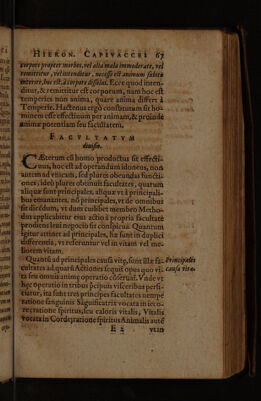 HIERON. CAPIVACCEI 67
corpore propter morbos, vel alia mala immoderate, vel
remittitur, vel intenditur, necesse est animam subito
interire, hoc est, à corpore dissolui. Ecce quod inten-
ditur, & remittitur est corporum, nam hoc est
temperies non anima, quare anima differt à
Temperie. Hactenus ergò constitutum sit ho-
minem esse effectiuum per animam, & proinde
animæ potentiam seu facultatem.
FACVLTATVM
diuisio.
CÆterum cũ homo productus sit effecti-
uus, hoc est ad operandum idoneus, non
autem ad vnicam, sed plures obeundas functi-
ones, ideò plures obtinuit facultates, quarum
aliquæ sunt principales, aliquæ vt à principali-
bus emanantes, nõ principales, vt de omnibus
sit dicẽdum, vt dum cuilibet membro Metho-
dus applicabitur eius actio à propria facultate
prodiens leui negocio sit conspicua. Quantum
igitur attinet ad principales, hæ sunt in duplici
differentia, vt referuntur vel in vitam vel me-
liorem vitam.
Quantũ ad principales causa vitę, sunt illæ fa-
cultates ad quarũ Actiones sequit opus quo vi-
ta seu omnis animę operatio cõseruat. Vnde
hęc operatio in tribus pcipuis visceribus persi-
ciatur, ita sunt tres principes facultates nempè
ratione sanguinis Sãguificatrix vocata in ieco-
re; ratione spiritus, seu caloris vitalis, Vitalis
vocata in Corde; ratione spiritus Animalis autẽ
Principales
causa vitæ.
E 2